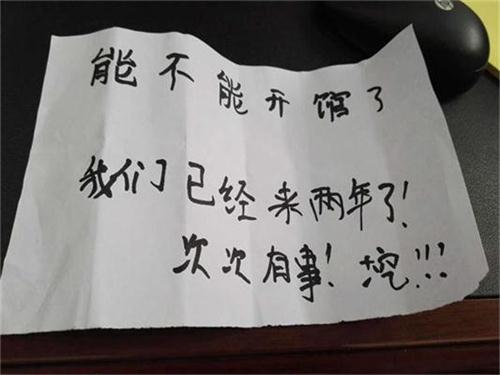 能不能开馆了
我们已经来两年了!
次次有事! !!!